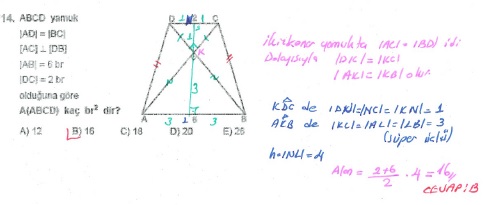 14. ABCD yamuk
|AD| = |BC|
[AC] ⊥ [DB]
|AB| = 6 br
|DC| = 2 br
olduğuna göre
A(ABCD) kaç br² dir?
A) 12 B) 16 C) 18 D) 20 E) 25
D 1 N 1 C
K
3
A 3 L 3 B
ikizkenar yamukta |AC| = |BD| idi
Dolayısıyla |DK| = |KC|
|AK| = |KB| olur
KDC de |DN| = |NC| = |KN| = 1
AKB de |KL| = |AL| = |LB| = 3
(süper üçlü)
h = |NL| = 4
Alan = 2+6/2 . 4 = 16
CEVAP: B